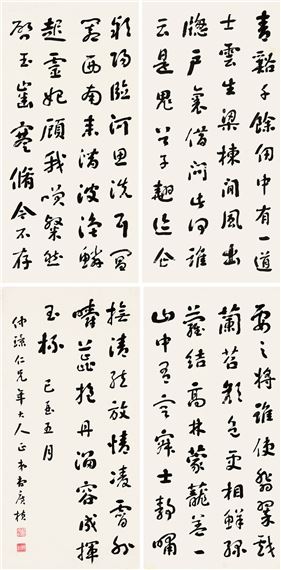 青谿千餘仞中有一道
士雲生梁棟間風出
牕戶裏借問此何誰
云是鬼谷子翹迹企
潁陽臨河思洗耳閶
闔西南來潛波渙鱗
起靈妃顧我笑粲然
啟玉齒蹇脩今不存
要之將誰使翡翠戲
蘭苕顏色更相鮮綠
蘿結高林蒙籠蓋一
山中有冥寂士靜嘯
撫清絃放情凌霄外
嚼蕊挹丹溜容成揮
玉杯 五月
仁兄年大人正